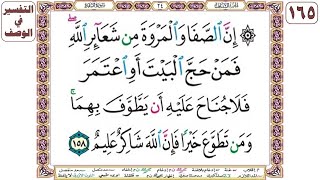 ١٦٥
التفسير
في
الوصف
٢٤
إِنَّ الصَّفَا وَالْمَرْوَةَ مِن شَعَائِرِ اللَّهِ
فَمَنْ حَجَّ الْبَيْتَ أَوِ اعْتَمَرَ
فَلَا جُنَاحَ عَلَيْهِ أَن يَطَّوَّفَ بِهِمَا
وَمَن تَطَوَّعَ خَيْرًا فَإِنَّ اللَّهَ شَاكِرٌ عَلِيمٌ ١٥٨